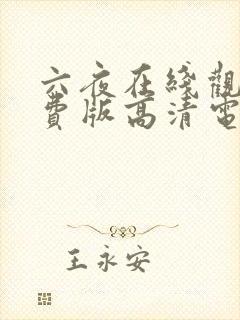 六夜在綫觀
費版高清電
王永安